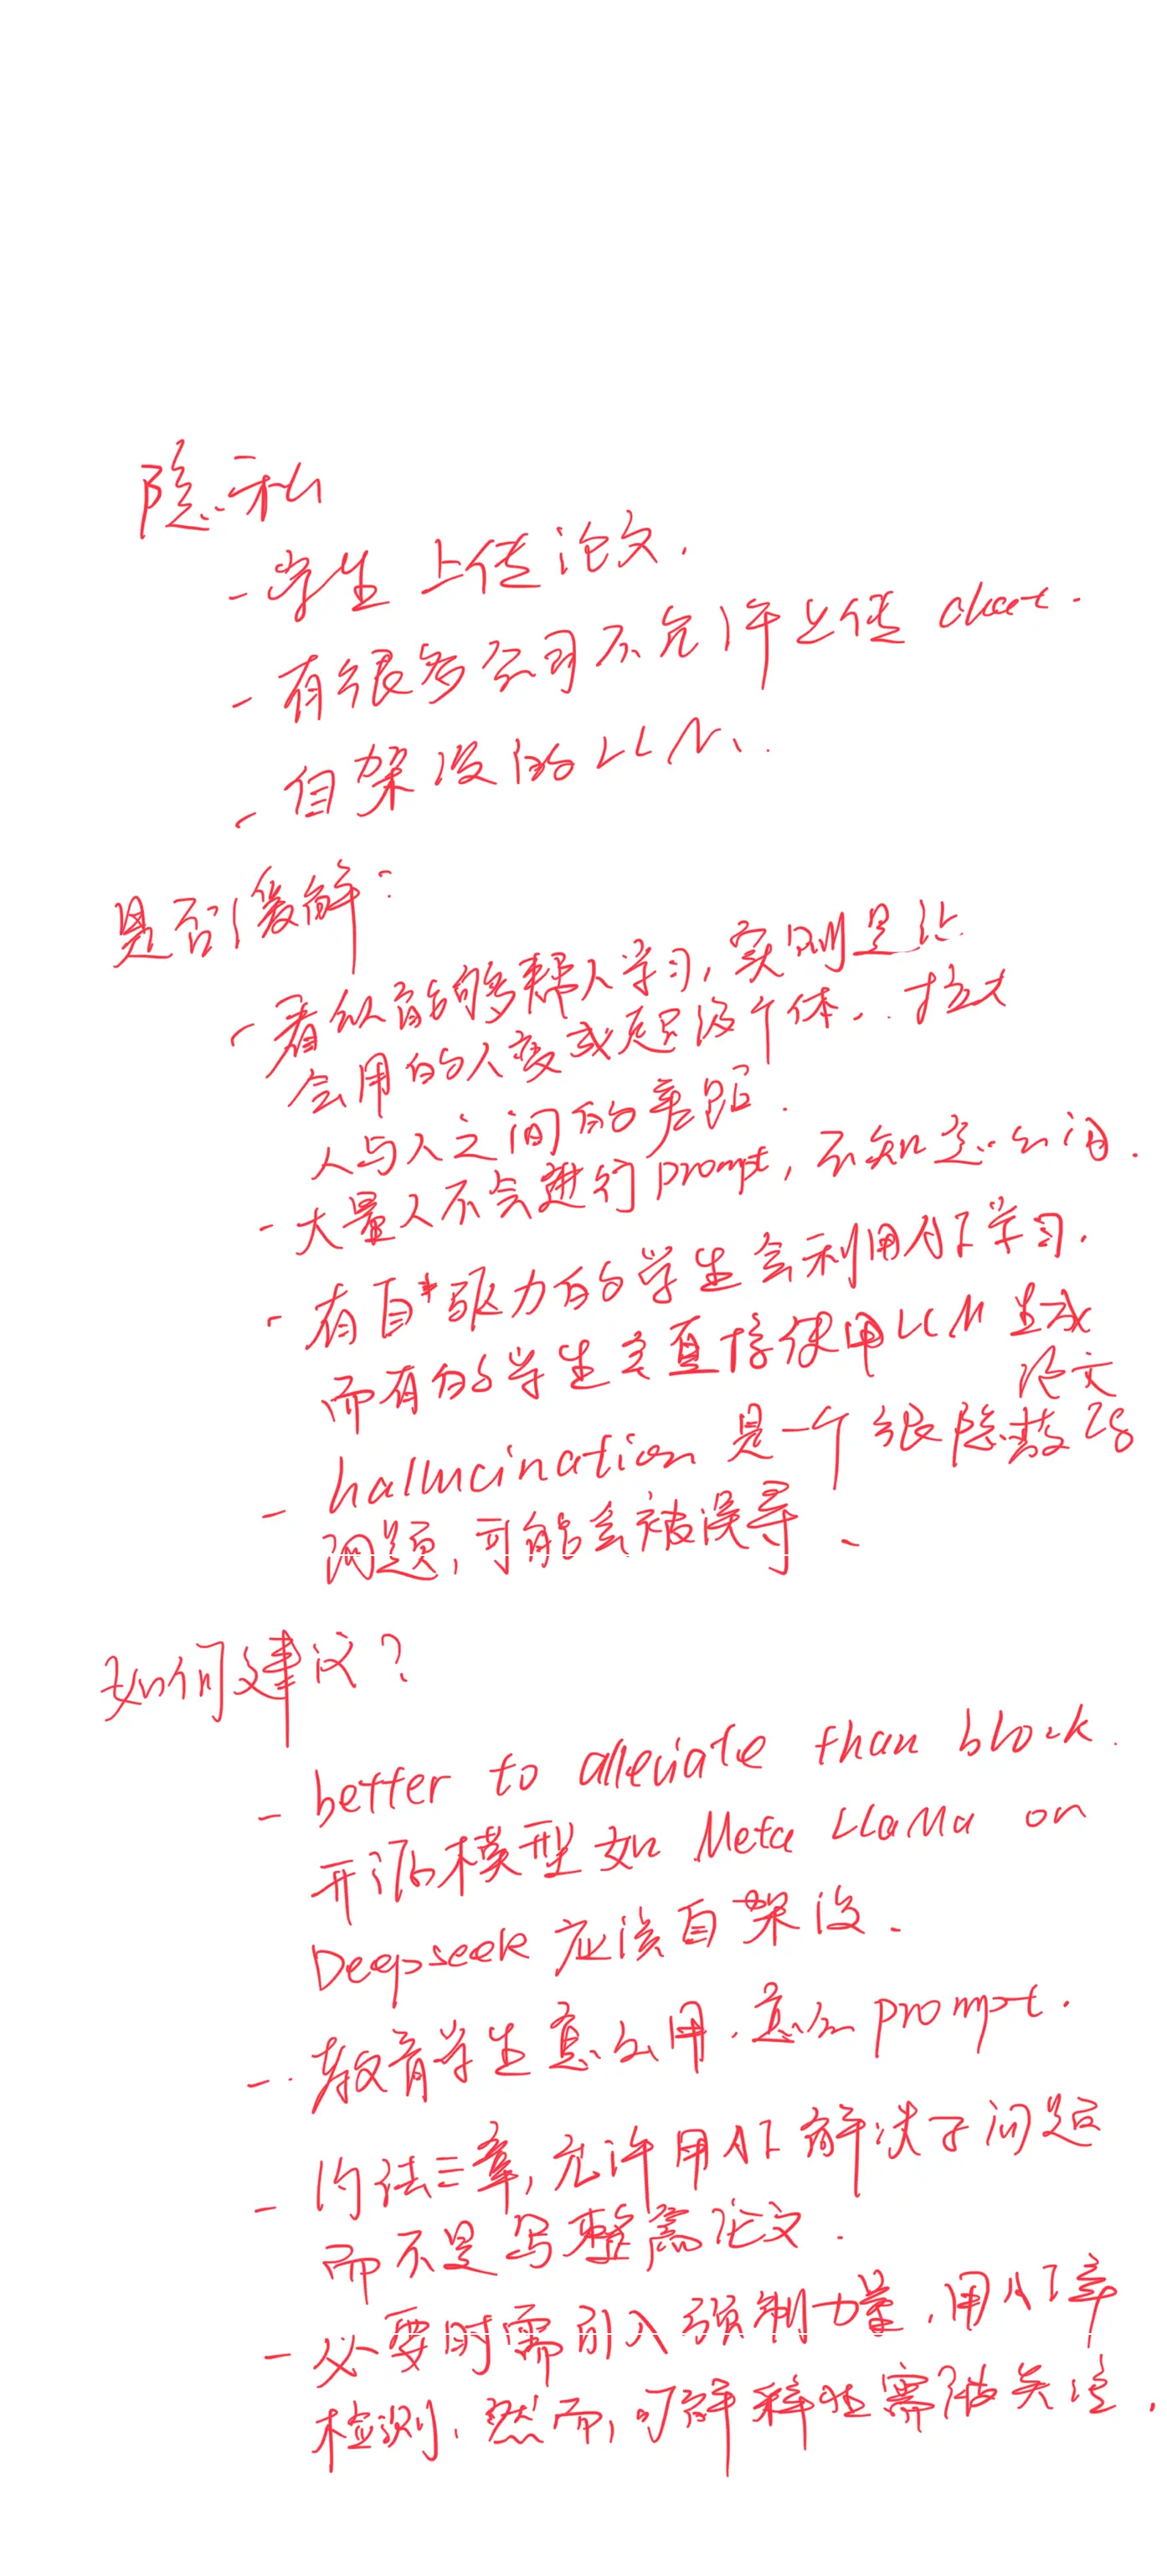 隐私
- 学生上传论文.
- 有很多公司不允许上传 chat.
- 自架设的LLM、.
是否缓解:
- 看似能够帮人学习, 实则是让
会用的人变成超级个体, 拉大
人与人之间的差距.
- 大量人不会进行prompt, 不知怎么用.
- 有自驱力的学生会利用AI学习.
而有的学生会直接使用LLM 生成
论文
- hallucination 是一个很隐蔽的
问题, 可能会被误导.
如何建议?
- better to alleviate than block.
开源模型如 Meta LLaMa on
Deepseek 应该自架设.
- 教育学生怎么用. 怎么prompt.
- 约法三章, 允许用AI解决子问题
而不是写整篇论文.
- 必要时需引入强制力量, 用AI率
检测. 然而, 可解释性需被关注.